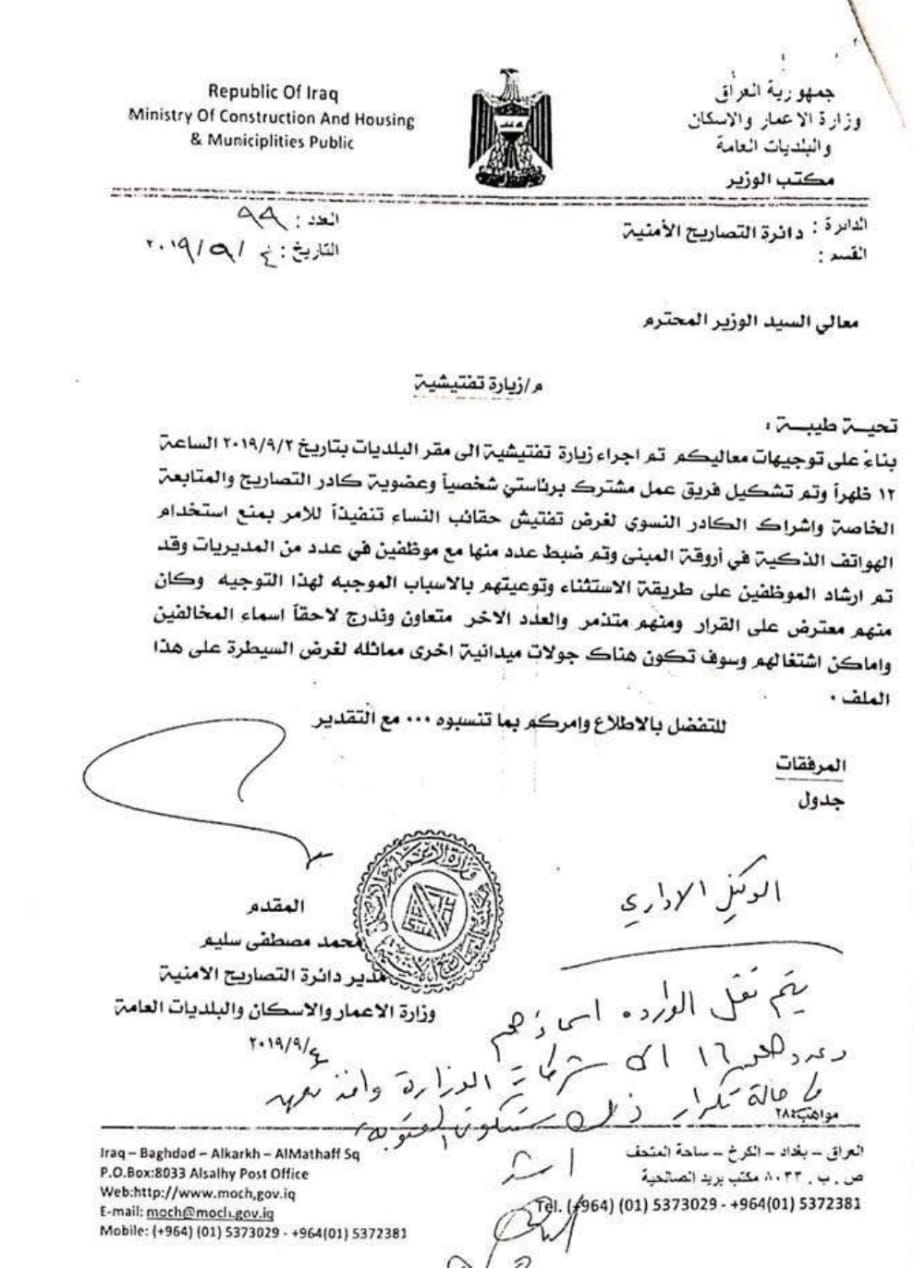 Republic Of Iraq
Ministry Of Construction And Housing
& Municiplities Public
جمهورية العراق
وزارة الاعمار والاسكان
والبلديات العامة
مكتب الوزير
الدائرة : دائرة التصاريح الأمنية
القسم :
العدد : ٩٩
التاريخ : ٤ / ٩ / ٢٠١٩
معالي السيد الوزير المحترم
م/زيارة تفتيشية
تحية طيبة ،
بناءً على توجيهات معاليكم تم اجراء زيارة تفتيشية الى مقر البلديات بتاريخ ٢٠١٩/٩/٢ الساعة
١٢ ظهراً وتم تشكيل فريق عمل مشترك برئاستي شخصياً وعضوية كادر التصاريح والمتابعة
الخاصة واشراك الكادر النسوي لغرض تفتيش حقائب النساء تنفيذاً للامر بمنع استخدام
الهواتف الذكية في أروقة المبنى وتم ضبط عدد منها مع موظفين في عدد من المديريات وقد
تم ارشاد الموظفين على طريقة الاستثناء وتوعيتهم بالاسباب الموجبه لهذا التوجيه وكان
منهم معترض على القرار ومنهم متذمر والعدد الاخر متعاون وندرج لاحقاً اسماء المخالفين
واماكن اشتغالهم وسوف تكون هناك جولات ميدانية اخرى مماثله لغرض السيطرة على هذا
الملف .
للتفضل بالاطلاع وامركم بما تنسبوه ... مع التقدير
المرفقات
جدول
المقدم
محمد مصطفى سليم
مدير دائرة التصاريح الامنية
وزارة الاعمار والاسكان والبلديات العامة
٢٠١٩/٩/٤
الوكيل الاداري
يتم نقل الوارده اسماؤهم
وعددهم ١٦ الى شركات الوزارة واخذ تعهد
حالة تكرار ذلك ستكون العقوبه
اشد
مواهب٢٨٤
Iraq – Baghdad – Alkarkh – AlMathaff Sq
P.O.Box:8033 Alsalhy Post Office
Web:http://www.moch,gov.iq
E-mail: moch@moch.gov.iq
Mobile: (+964) (01) 5373029 - +964(01) 5372381
العراق – بغداد – الكرخ – ساحة المتحف
ص . ب . ٨٠٣٣ مكتب بريد الصالحية
Tel. (+964) (01) 5373029 - +964(01) 5372381